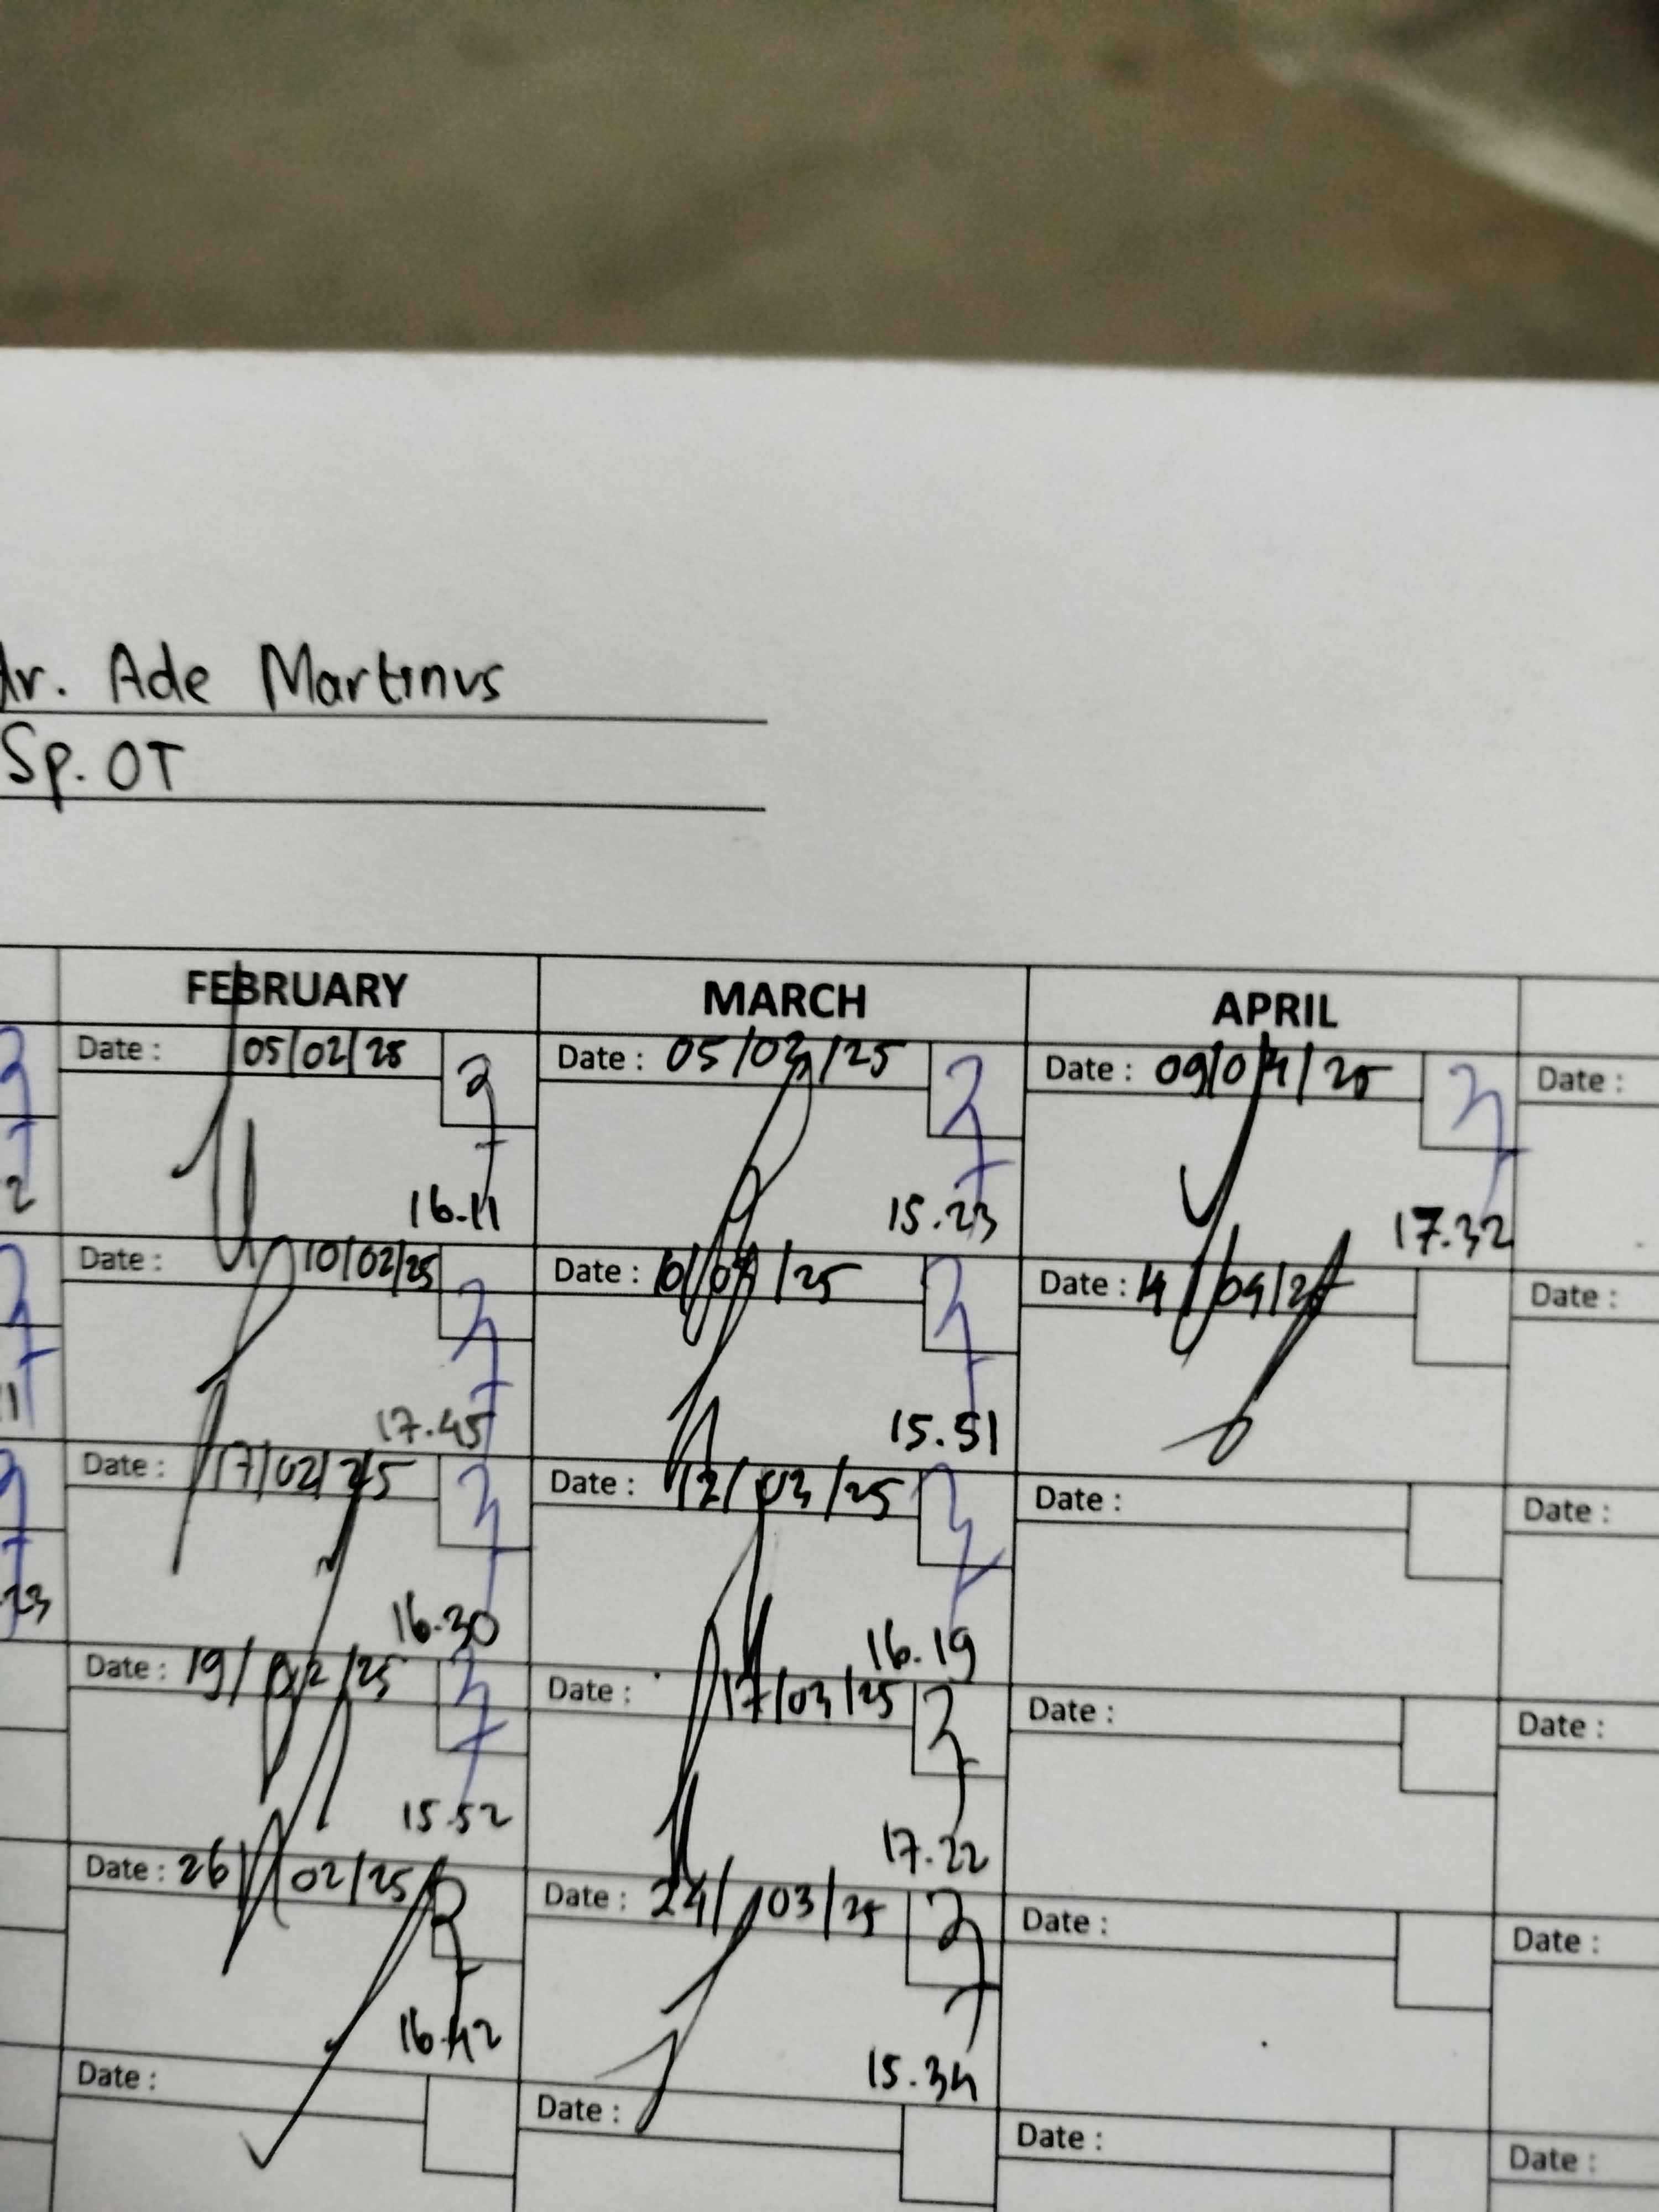 dr. Ade Martinus
Sp. OT
FEBRUARY MARCH APRIL
Date : 05/02/25 Date : 05/03/25 Date : 09/04/25 Date :
16.11 15.23 17.32
Date : 10/02/25 Date : 10/03/25 Date : 14/04/25 Date :
17.45 15.51
Date : 17/02/25 Date : 12/03/25 Date : Date :
16.30 16.19
Date : 19/02/25 Date : 17/03/25 Date : Date :
15.52 17.22
Date : 26/02/25 Date : 24/03/25 Date : Date :
16.42 15.34
Date : Date : Date : Date :